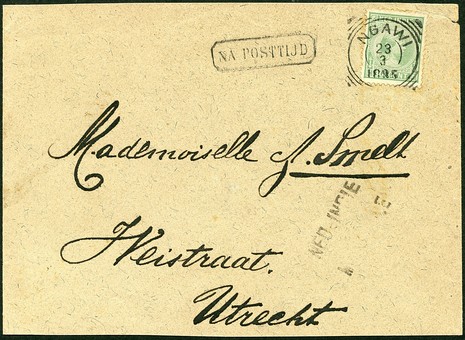 NA POSTTIJD
NGAWI
23
3
1895
Mademoiselle J. Smelt
Heistraat.
Utrecht
NED-INDIE